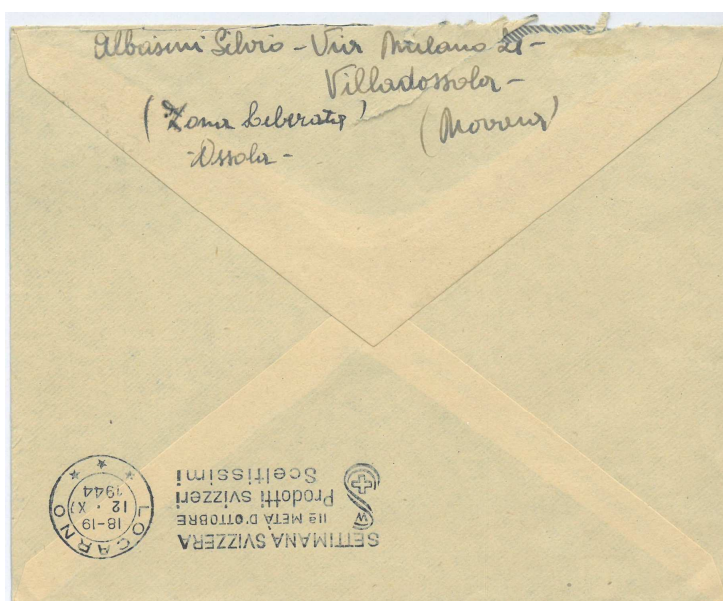 Albasini Silvio - Via Milano 21 -
Villadossola -
(Zona Liberata) (Novara)
- Ossola -
SETTIMANA SVIZZERA
IIª METÀ D'OTTOBRE
Prodotti svizzeri
Sceltissimi
W
LOCARNO
18-19
12 · X
1944